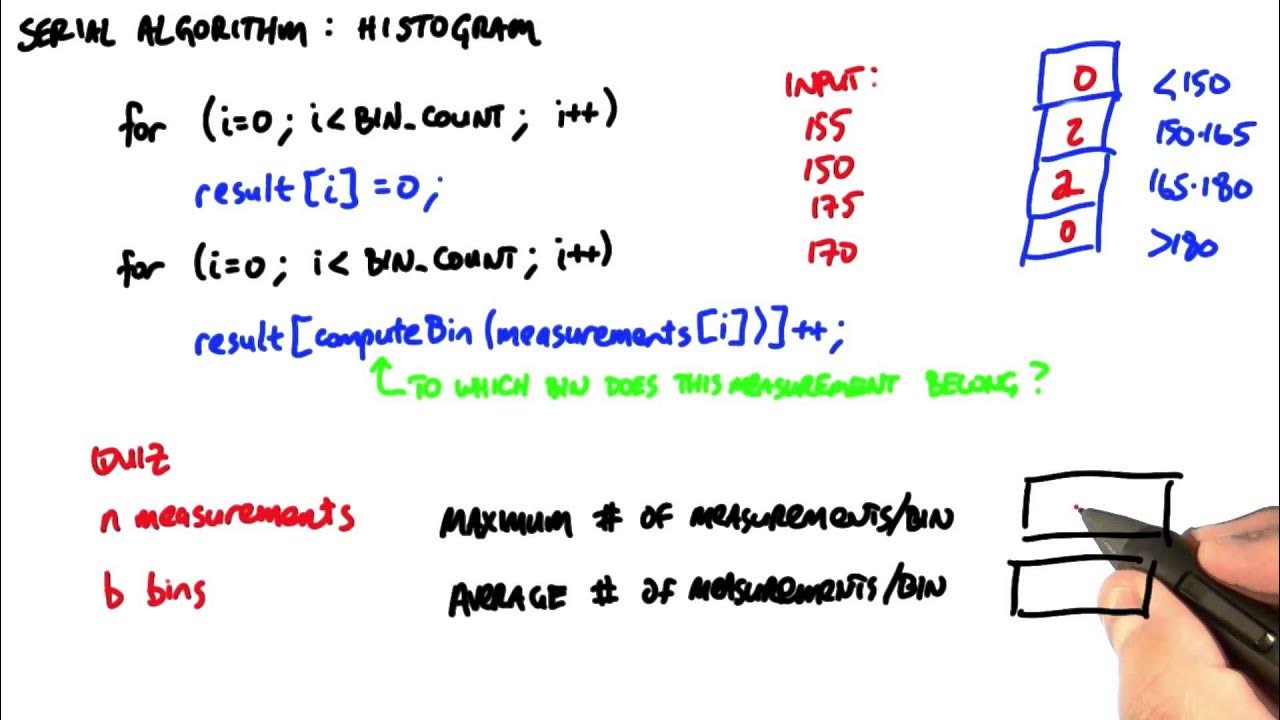 SERIAL ALGORITHM: HISTOGRAM
for (i=0; i< BIN_COUNT; i++)
result[i]=0;
for (i=0; i< BIN_COUNT; i++)
result[computeBin(measurements[i])]++;
TO WHICH BIN DOES THIS MEASUREMENT BELONG?
INPUT:
155
150
175
170
0 <150
2 150-165
2 165-180
0 >180
QUIZ
n measurements
b bins
MAXMUM # OF MEASUREMENTS/BIN
AVERAGE # OF MEASUREMENTS/BIN